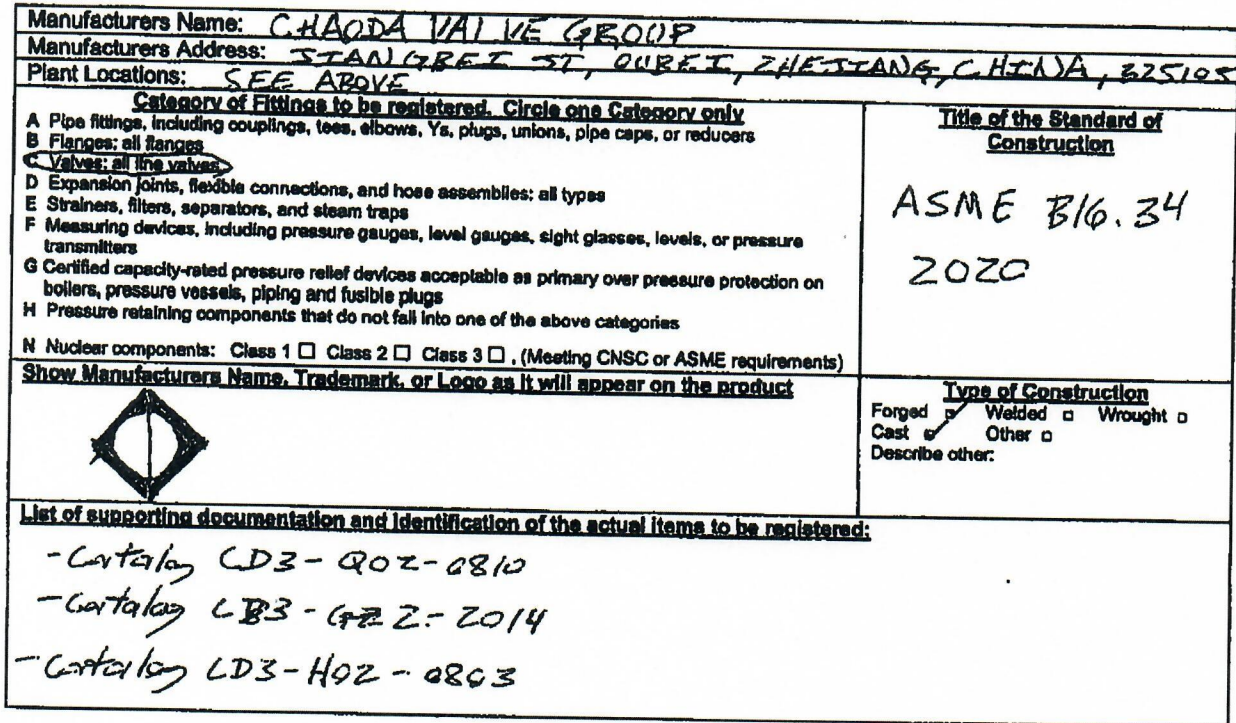 Manufacturers Name: CHAODA VALVE GROUP
Manufacturers Address: JIANGBEI ST, OUBEI, ZHEJIANG, CHINA, 325105
Plant Locations: SEE ABOVE
Category of Fittings to be registered. Circle one Category only
A Pipe fittings, including couplings, tees, elbows, Ys, plugs, unions, pipe caps, or reducers
B Flanges; all flanges
C Valves; all line valves
D Expansion joints, flexible connections, and hose assemblies; all types
E Strainers, filters, separators, and steam traps
F Measuring devices, including pressure gauges, level gauges, sight glasses, levels, or pressure
transmitters
G Certified capacity-rated pressure relief devices acceptable as primary over pressure protection on
boilers, pressure vessels, piping and fusible plugs
H Pressure retaining components that do not fall into one of the above categories
N Nuclear components: Class 1 □ Class 2 □ Class 3 □ . (Meeting CNSC or ASME requirements)
Title of the Standard of
Construction
ASME B16.34
2020
Show Manufacturers Name, Trademark, or Logo as it will appear on the product
Type of Construction
Forged Welded □ Wrought □
Cast Other □
Describe other:
List of supporting documentation and identification of the actual items to be registered:
- Catalog CD3-Q02-0810
- Catalog -2014
- Catalog CD3-H02-0803